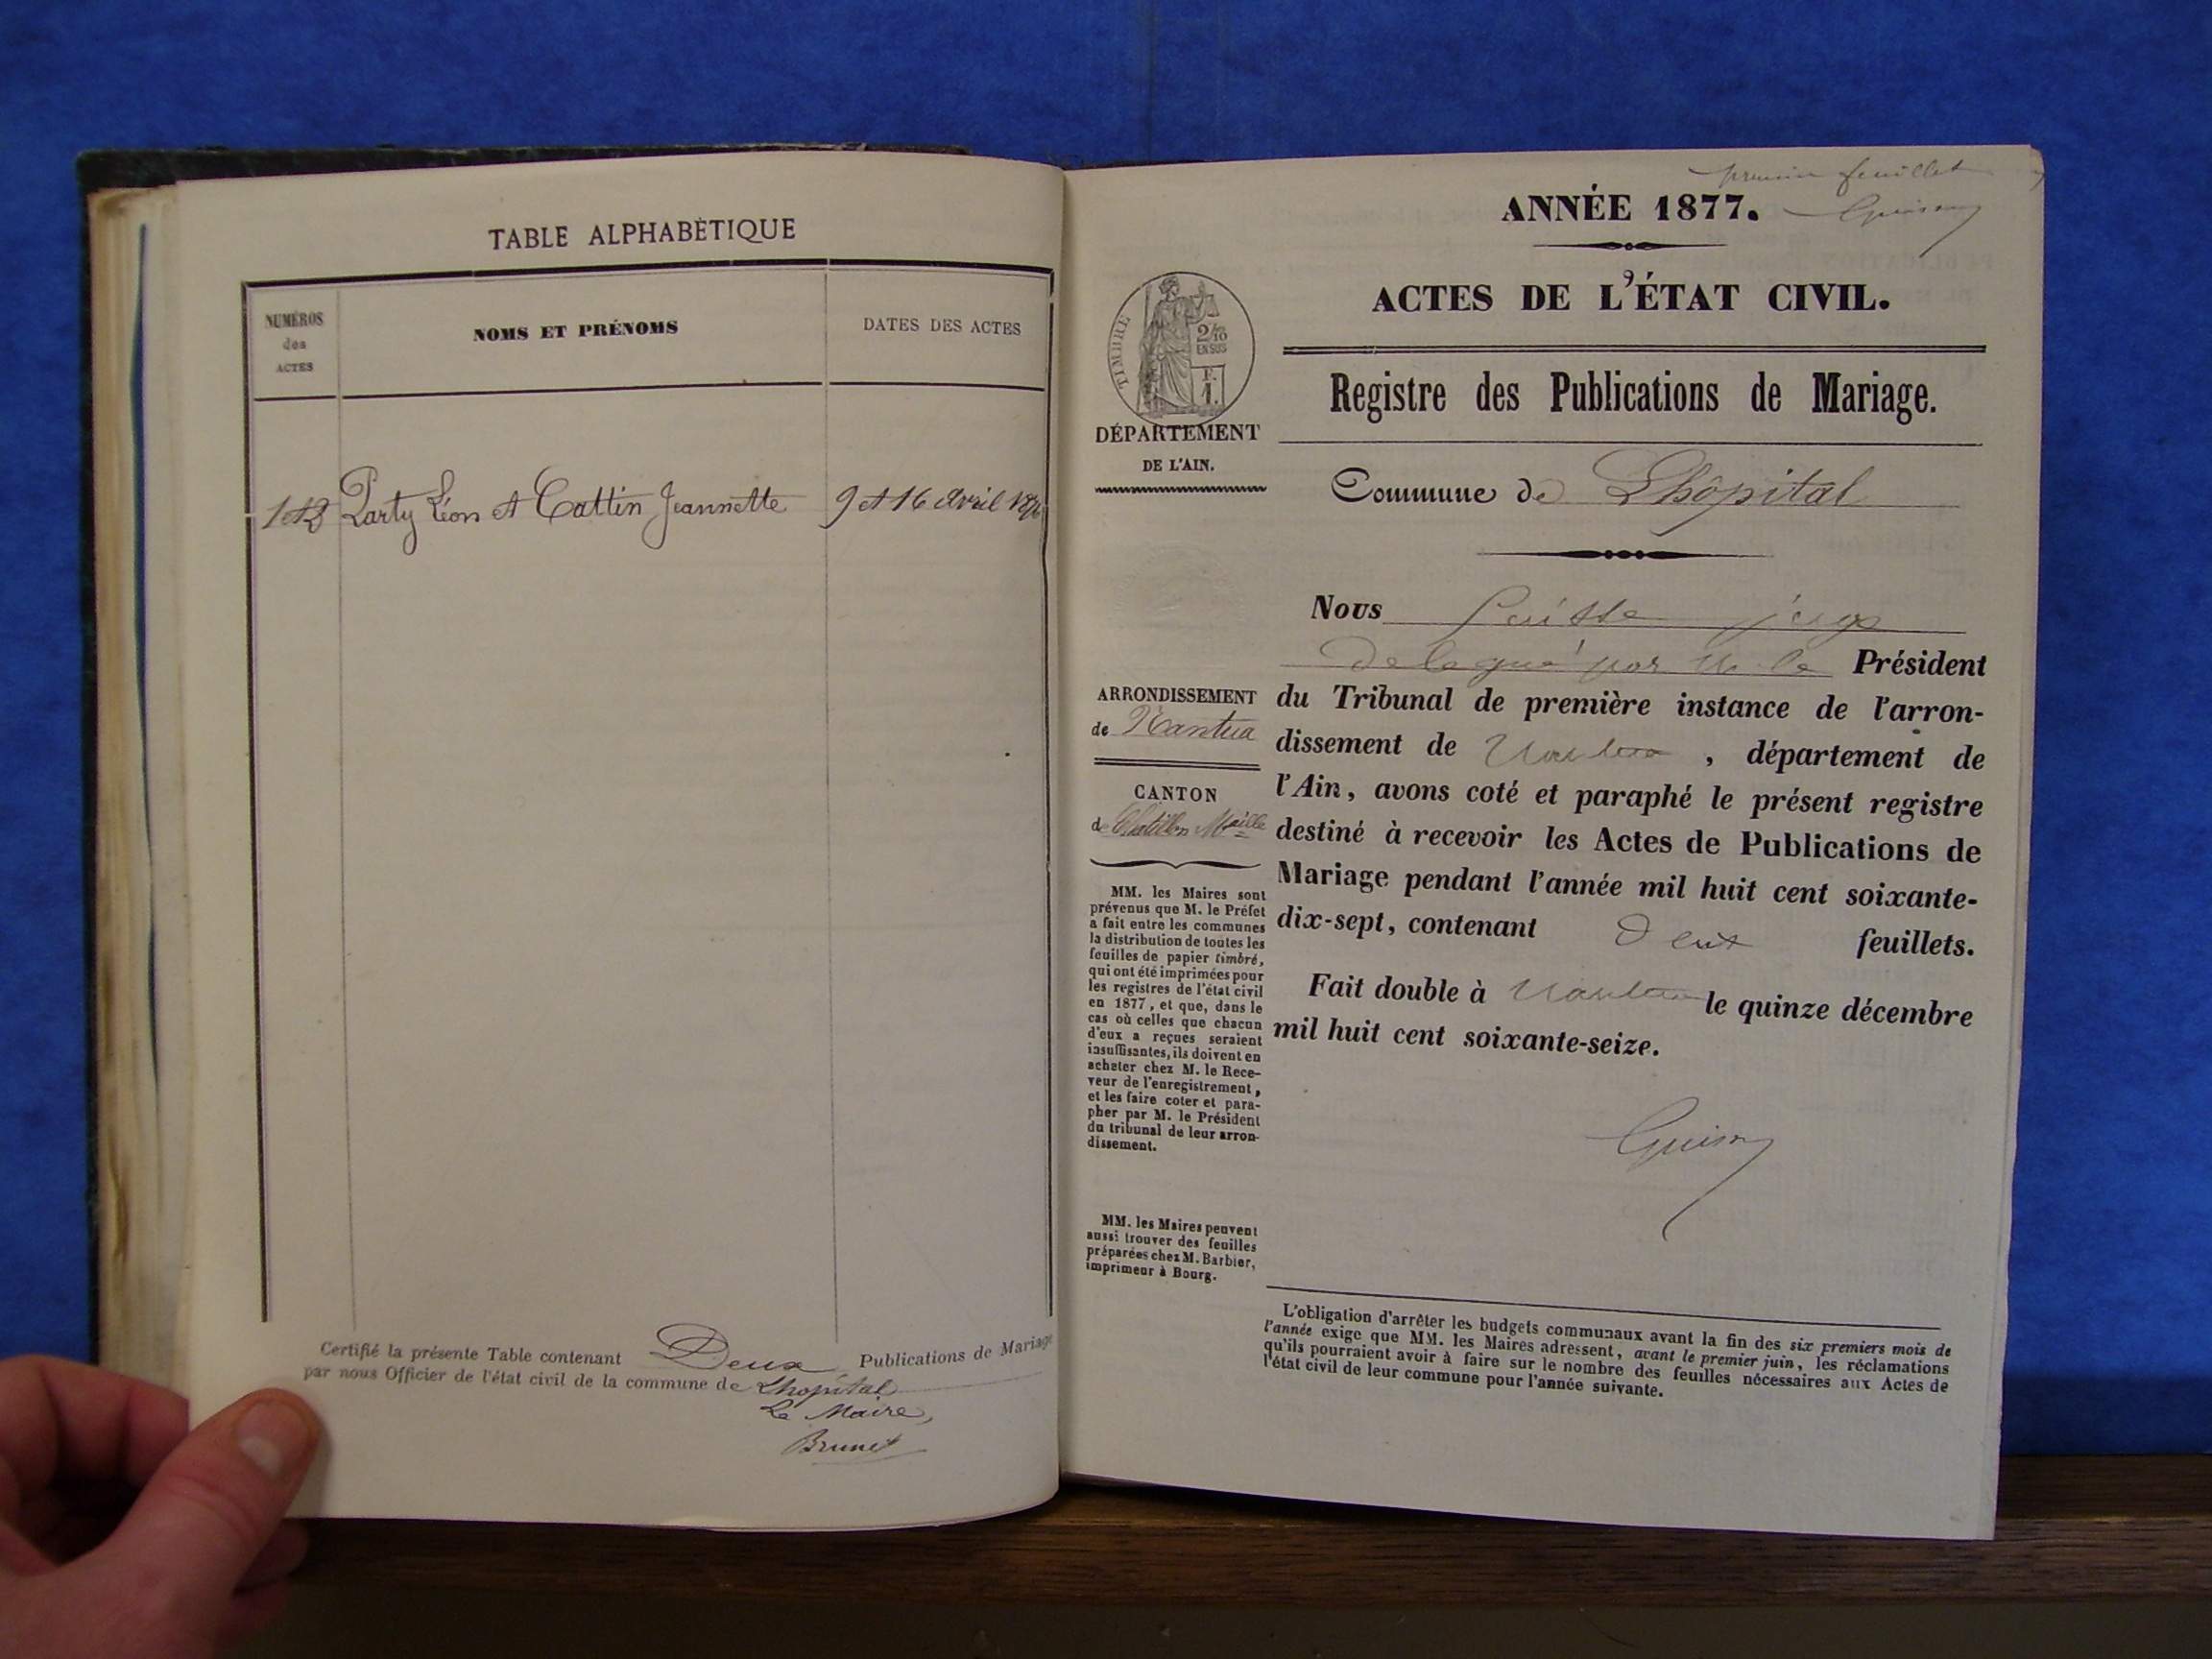 TABLE ALPHABÈTIQUE
NUMÉROS
des
ACTES
NOMS ET PRÉNOMS
DATES DES ACTES
1 et 2 Party Léon et Cattin Jeannette 9 et 16 Avril
Certifié la présente Table contenant Deux Publications de Mariage
par nous Officier de l'état civil de la commune de Lhopital
Le Maire,
Brunet
premier feuillet
ANNÉE 1877.
ACTES DE L'ÉTAT CIVIL.
Registre des Publications de Mariage.
TIMBRE
2/10
EN SUS
F.
1.
DÉPARTEMENT
DE L'AIN.
Commune de Lhôpital
Nous juge
délégué par M. le Président
du Tribunal de première instance de l'arron-
dissement de Nantua, département de
l'Ain, avons coté et paraphé le présent registre
destiné à recevoir les Actes de Publications de
Mariage pendant l'année mil huit cent soixante-
dix-sept, contenant Deux feuillets.
Fait double à Nantua le quinze décembre
mil huit cent soixante-seize.
ARRONDISSEMENT
de Nantua
CANTON
de Chatillon Mlle
MM. les Maires sont
prévenus que M. le Préfet
a fait entre les communes
la distribution de toutes les
feuilles de papier timbré,
qui ont été imprimées pour
les registres de l'état civil
en 1877, et que, dans le
cas où celles que chacun
d'eux a reçues seraient
insuffisantes, ils doivent en
acheter chez M. le Rece-
veur de l'enregistrement,
et les faire coter et para-
pher par M. le Président
du tribunal de leur arron-
dissement.
MM. les Maires peuvent
aussi trouver des feuilles
préparées chez M. Barbier,
imprimeur à Bourg.
L'obligation d'arrêter les budgets communaux avant la fin des six premiers mois de
l'année exige que MM. les Maires adressent, avant le premier juin, les réclamations
qu'ils pourraient avoir à faire sur le nombre des feuilles nécessaires aux Actes de
l'état civil de leur commune pour l'année suivante.